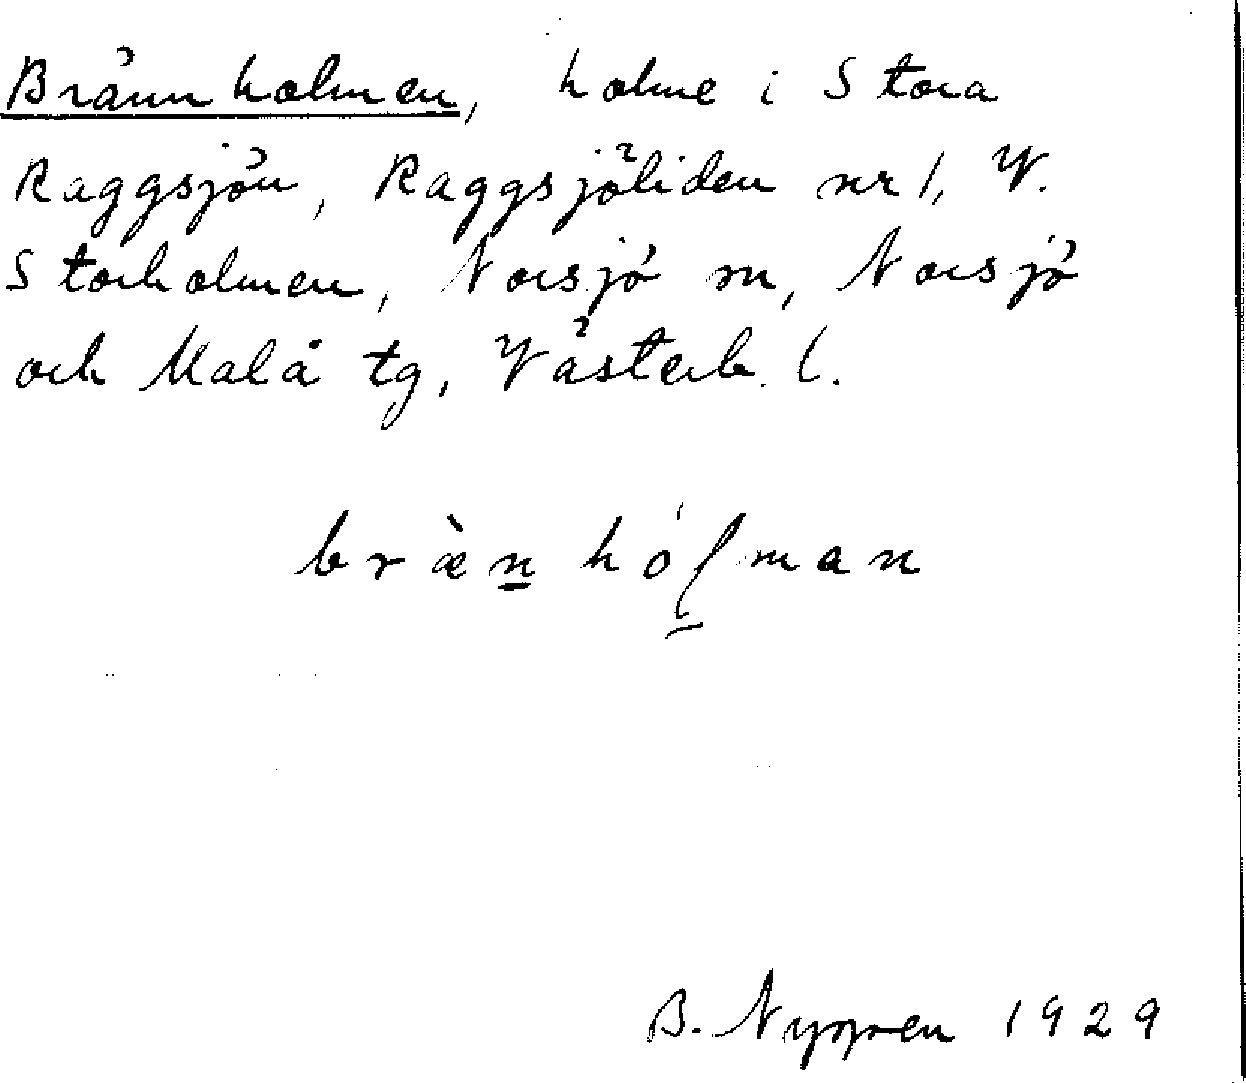 Brännholmen, holme i Stora
Raggsjön, Raggsjöliden nr 1, V.
Storholmen, Norsjö sn, Norsjö
och Malå tg, Västerb. l.
bræ̀n hólman
B. Nygren 1929